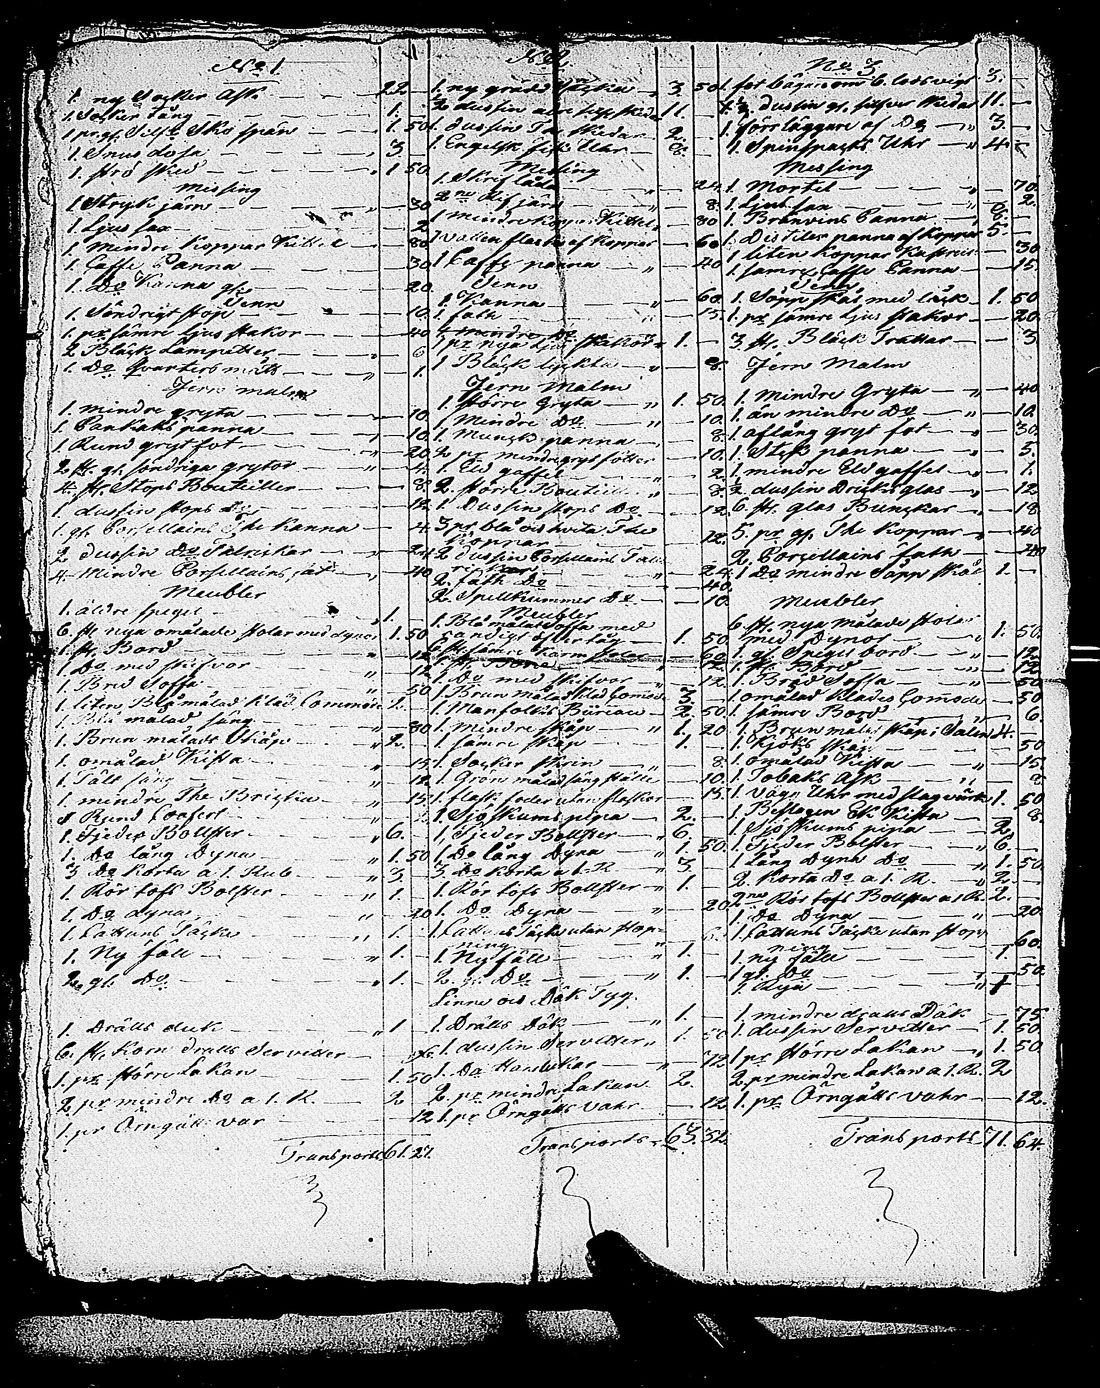 No 1.
1. ny Socker Ask — 22. —
1. Socker tång — 1. —
1. pr. gl. Silfr Sko spän — 1. 50
1. Snus dosa — 3. —
1. strö sked — 1. 50
Messing
1. Stryk järn — 30
1. Ljus sax — 2
1. Mindre Koppar Kittel — 80
1. Caffe Panna — 30
1. Do Kanna gl. — 20
Tenn
1. Söndrigt stop — 10
1. pr sämre ljus stakar — 40
2 Bläck Lampetter — 6
1. Do quarters mått — 1.
Jern malm
1. mindre gryta — 10
1. Pankaks panna — 10
1. Rund gryt fot — 20
2. st. gl. söndriga grytor — 4
4. st. Stops Bouteiller — 8
1 dussin stops Do — 12
1. gl. Porsellains The Kanna — 4
2 dussin Do Talrickar — 24
4. Mindre Porsellains fat — 40
Meubler
1. äldre spegel — 1. —
6. st. nya omålade stolar med dynor 1. 50
1. st. Bord — 12
1. Do med skifvor — 12
1. Bred Soffa — 50
1. liten Blå målad Kläd Commode 2. —
1. Blå målad säng — 80
1. Brun målad Skåp — 2. —
1. omålad Kista — 15
1. Tält säng — 12
1. mindre The Bricka — 15
1. Fjeder Bollster — 6. —
1. Do lång Dyna — 1. 50
3 Do Korta a 1. Rub. — 3
1. Rör tofs Bolster — 1.
1. Do dyna — 20
1. Cattuns Täcke — 1.
1. Ny fäll — 1.
2. gl. Do — 1.
1. Drälls duk — 1
6. st. Korn dralls Servetter — 96
1. pr större Lakan — 1. 50
2. pr mindre Do a 1. R. — 2
1. pr Örngåtts var — 12
Transports 61. 27.
No 2.
1. ny gräddsnäcka — 3. 50
2 dussin Skedar 11. —
1. dussin The Skedar — 2. —
1. Engelsk fick Uhr — 8. —
Messing
1. Skrif låda — 24
2ne Ref järn — 8
1 mindre Koppar Kittel — 80
1 Vatten flaska af Koppar — 60
1 Caffe panna — 40
Tenn
1. Kanna — 60
1. fath — 15
1 pr nya ljus stakar 1. —
1 Bläck lyckta — 8
Jern Malm
1. större Gryta — 1. 50
1. Mindre Do — 10
1. Munck panna — 8
2. pr. mindre gryt fötter — 10
1. Eld gaffel — 2
2. större Bouteiller — 8
1. Dussin stops Do — 12
3 pr. blå och hvita The
Koppar — 12
2 dussin Porsellains Tall
rickar — 24
2. fath Do — 40
2. Spellkummer Do — 10
Meubler
1. Blå målad soffa med
randigt öfverdrag — 1. 50
6 st. sämre Karm stolar — 60
1. st. Bord — 12
1. Do med skifvor — 12
1. Brun målad Klad Comode 3. —
1. Manfolks Büreau — 2. 50
1. mindre skåp — 1. 20
1 sämre skåp — 1. —
1. Socker skrin — 8
1. Grön målad säng ställe — 10
1. flask foder utan flaskor — 15
1. Sjö skums pipa — 2. —
1. Fjeder Bollster — 6. —
1. Do lång Dyna — 1. 50
3. Do Korta a 1. R — 3
1. Rör tofs Bollster — 1. —
1. Do Dyna — 20
1. Cattuns Täcke utan stopp
ning
1. Ny fäll — 1. —
2. gl. Do — 1.
Linne och Däk Tyg.
1. Drälls Däk — 1
1. dussin Servetter — 1. 50
1. Do Handukar — 72
2. pr. mindre Lakan — 2.
1. pr. Örngåtts vahr — 12
Transports 63. 52.
No 3
1. fot bägare om 6. lod svigt 3. —
1 ½ dussin gl. silfver skedar 11. —
1. förrläggare af Do — 3. —
1. Spinspacks Uhr — 4. —
Messing
1. Mortel — 70
1. ljus sax — 2
1. Bränvins Panna — 5.
1. Distiler panna af Koppar 5. —
1. liten Koppar Kastrull 30
1. sämre Caffe Panna — 15
Tenn
1. Sopp skål med läck — 1. 50
1. pr sämre ljus stakar — 20
3. st. Bläck Trattar — 3
Jern Malm
1. Mindre Gryta — 40
1. än mindre Do — 10
1. aflång gryt fot — 30
1. Stek panna — 5
1. mindre Eld gaffel — 1
2. dussin Dricks glas — 12
6. st. glas Bunckar — 18
5. pr. gl. The Koppar — 40
2. Porsellains fath — 40
1 Do mindre Sopp skål 1. —
Meubler
6. st. nya målade stolar
med Dynor — 1. 50
1. gl. Spegel bord — 12
1. st. Bord — 12
1. Bred Soffa — 50
1. omålad Klades Comode 50
1. sämre Bord — 6
1. Brun målad skåp i Salen 4. —
1. Köks skåp — 50
1. omålad Kista — 15
1. Tobaks Ask — 8
1. vägg Uhr med slagvärk 1. 50
1. Beslagen Ek Kista — 8
1. Sjö skums pipa — 2.
1. Fjeder Bolster — 6. —
1. lång Dyna Do — 1. 50
2. Korta Do a 1. R. — 2. —
2ne Rör tofs Bollster a 1. R 2. —
1. Do Dyna — 20
1. Cattuns Täcke utan stopp
ning — 60
1. ny fäll — 1. —
1. gl. Do — 50
1. Rya — 1
1. mindre dralls Däk — 75
1. dussin Servetter — 1. 50
1. pr större Lakan — 1. 50
2. pr mindre Lakan a 1. R. 2
1. pr. Örngåtts vahr — 12.
Transports 71. 64.